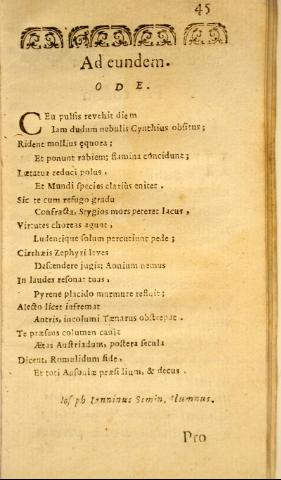 45
Ad eundem.
O D E.
CEu pulsis revehit diem
Iam dudum nebulis Cynthius obsitus;
Rident mollius ęquora;
Et ponunt rabiem; flamina concidunt;
Lætatur reduci polus,
Et Mundi species clariùs enitet.
Sic te cum refugo gradu
Confracta, Stygios mors peteret lacus,
Virtutes choreas agunt,
Ludentique solum percutiunt pede;
Cirrhæis Zephyri leves
Descendere jugis; Aonium nemus
In laudes resonat tuas,
Pyrene placido murmure refluit;
Alecto licet infremat
Antris, incolumi Tænarus obstrepat.
Te præsens columen canit
Ætas Austriadum, postera secula
Dicent, Romulidum fide,
Et toti Ausoniæ præsidium, & decus.
Ioseph Ianninus Semin. Alumnus.
Pro